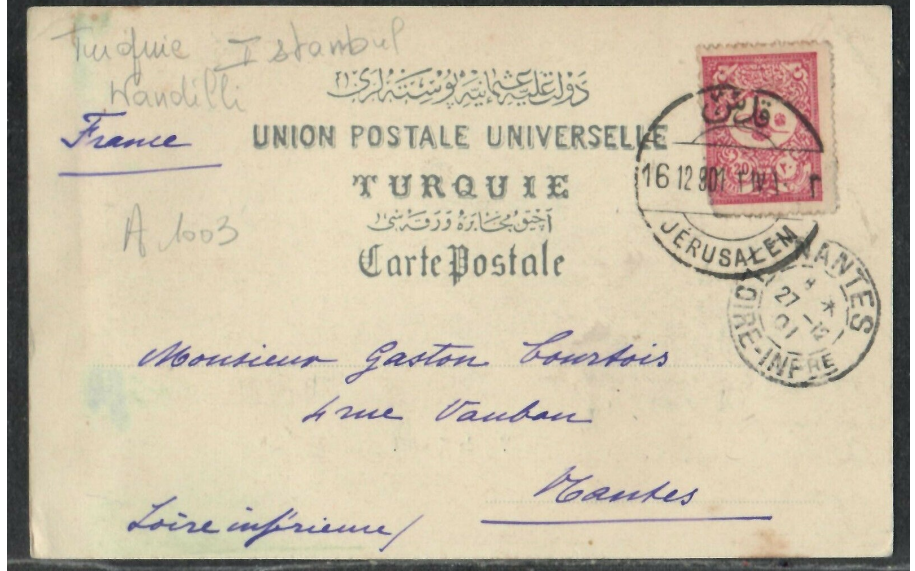 Turquie Istanbul
Kandilli
France
دولت علیهٔ عثمانیه پوسته لری
UNION POSTALE UNIVERSELLE
TURQUIE
آچیق مخابره ورقه سی
Carte Postale
A 1003
قدس
20
16 12 901
JÉRUSALEM
NANTES
27-12
01
LOIRE-INFRE
Monsieur Gaston Courtois
4 rue Vauban
Nantes
Loire inférieure